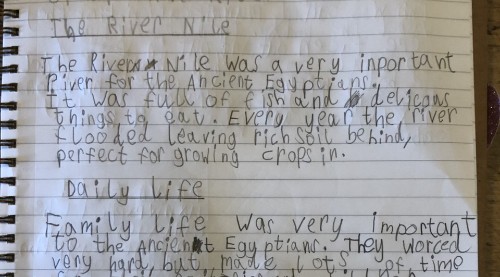 The River Nile
The River Nile was a very inportant
River for the Ancient Egyptians.
It was full of fish and delicons
things to eat. Every year the river
flooded leaving rich soil behind,
perfect for growing crops in.
Daily Life
Family Life was very important
to the Ancient Egyptians. They worced
very hard, but made lots of time